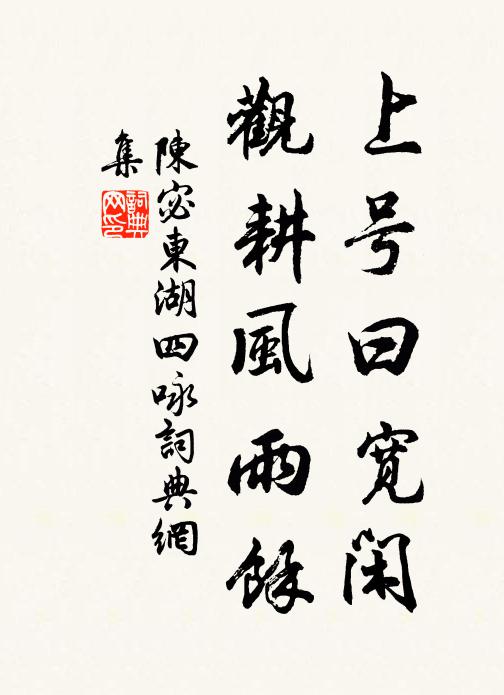 上号曰寬閑
觀耕風雨餘
陳宓東湖四咏詞典網
集
詞典網印